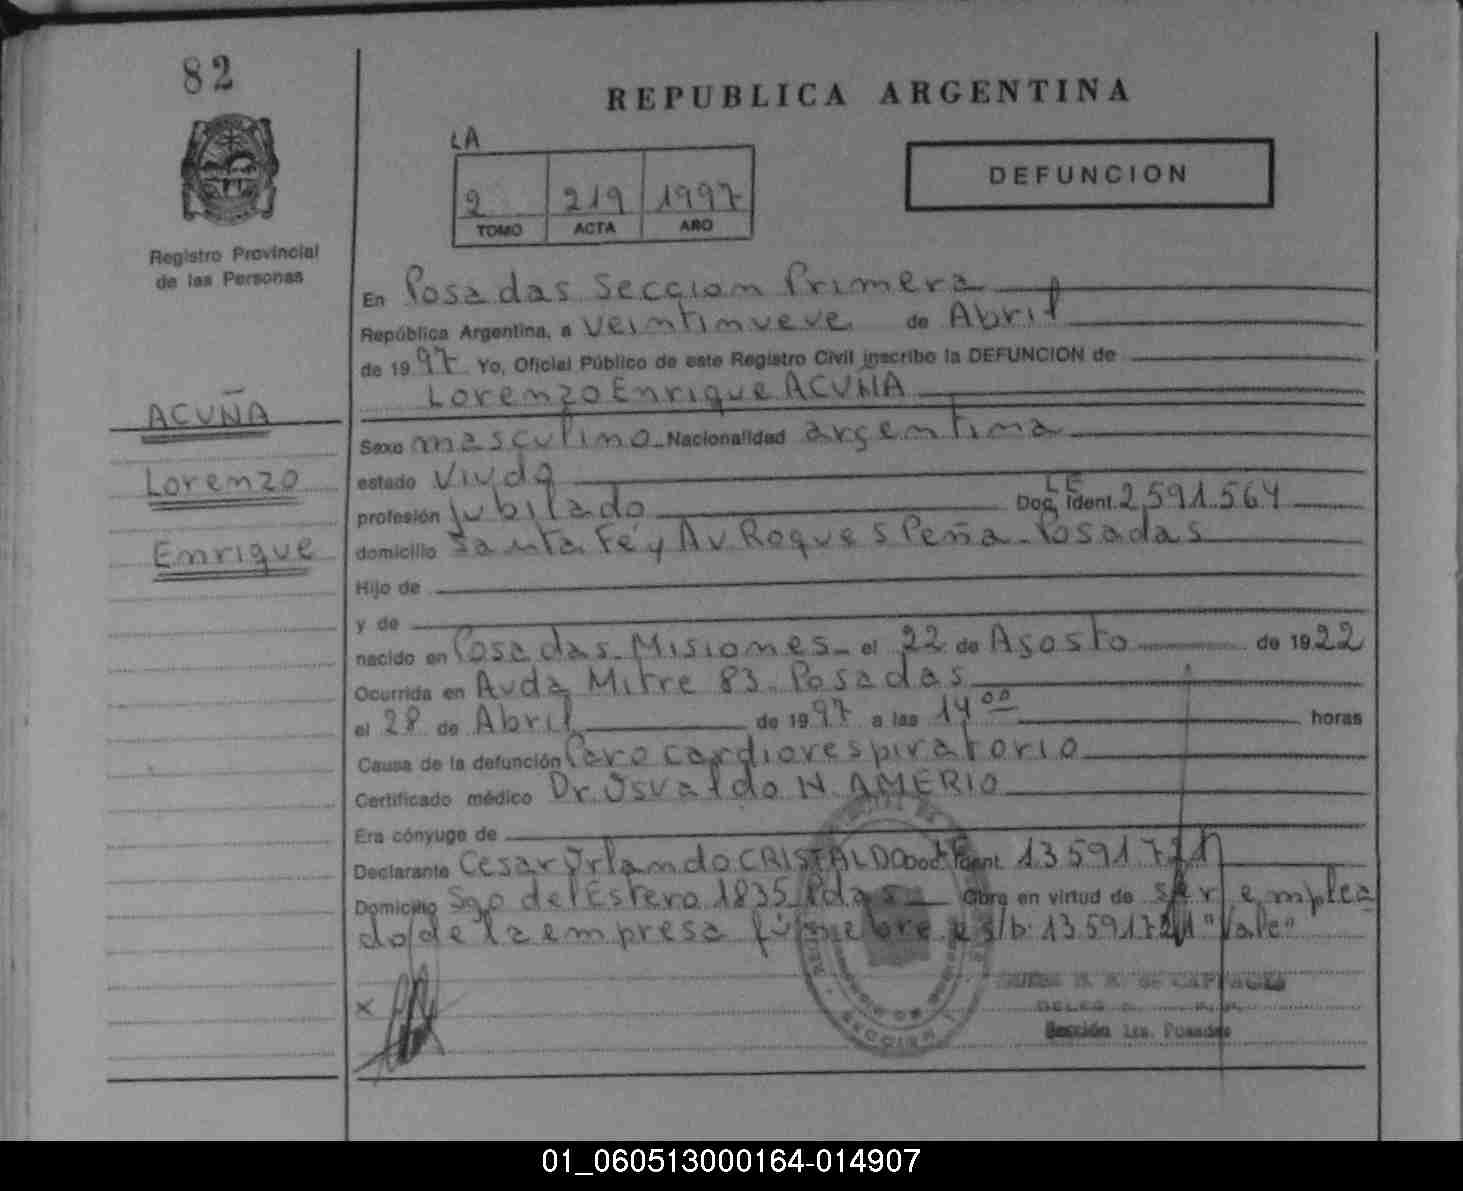 82
REPUBLICA ARGENTINA
LA
2 219 1997
TOMO ACTA AÑO
DEFUNCION
Registro Provincial
de las Personas
En Posadas Seccion Primera
República Argentina, a veintinueve de Abril
de 1997 Yo, Oficial Público de este Registro Civil inscribo la DEFUNCION de
Lorenzo Enrique ACUÑA
ACUÑA
Lorenzo
Enrique
Sexo masculino Nacionalidad argentina
estado Viudo
LE
profesión jubilado Doc. Ident. 2.591.564
domicilio Santa Fé y Av Roque S Peña - Posadas
Hijo de
y de
nacido en Posadas Misiones - el 22 de Agosto de 1922
Ocurrida en Avda Mitre 83 - Posadas
el 28 de Abril de 1997 a las 14 00 horas
Causa de la defunción Paro cardiorespiratorio
Certificado médico Dr. Osvaldo N. AMERIO
Era cónyuge de
Declarante Cesar Orlando CRISTALDO Doc. Ident. 13.591.721
Domicilio Sgo del Estero 1835 Pdas Obra en virtud de ser emplea
do de la empresa fúnebre s/b: 13.591.721 "Vale"
X
Sección 1ra. Posadas
01_060513000164-014907